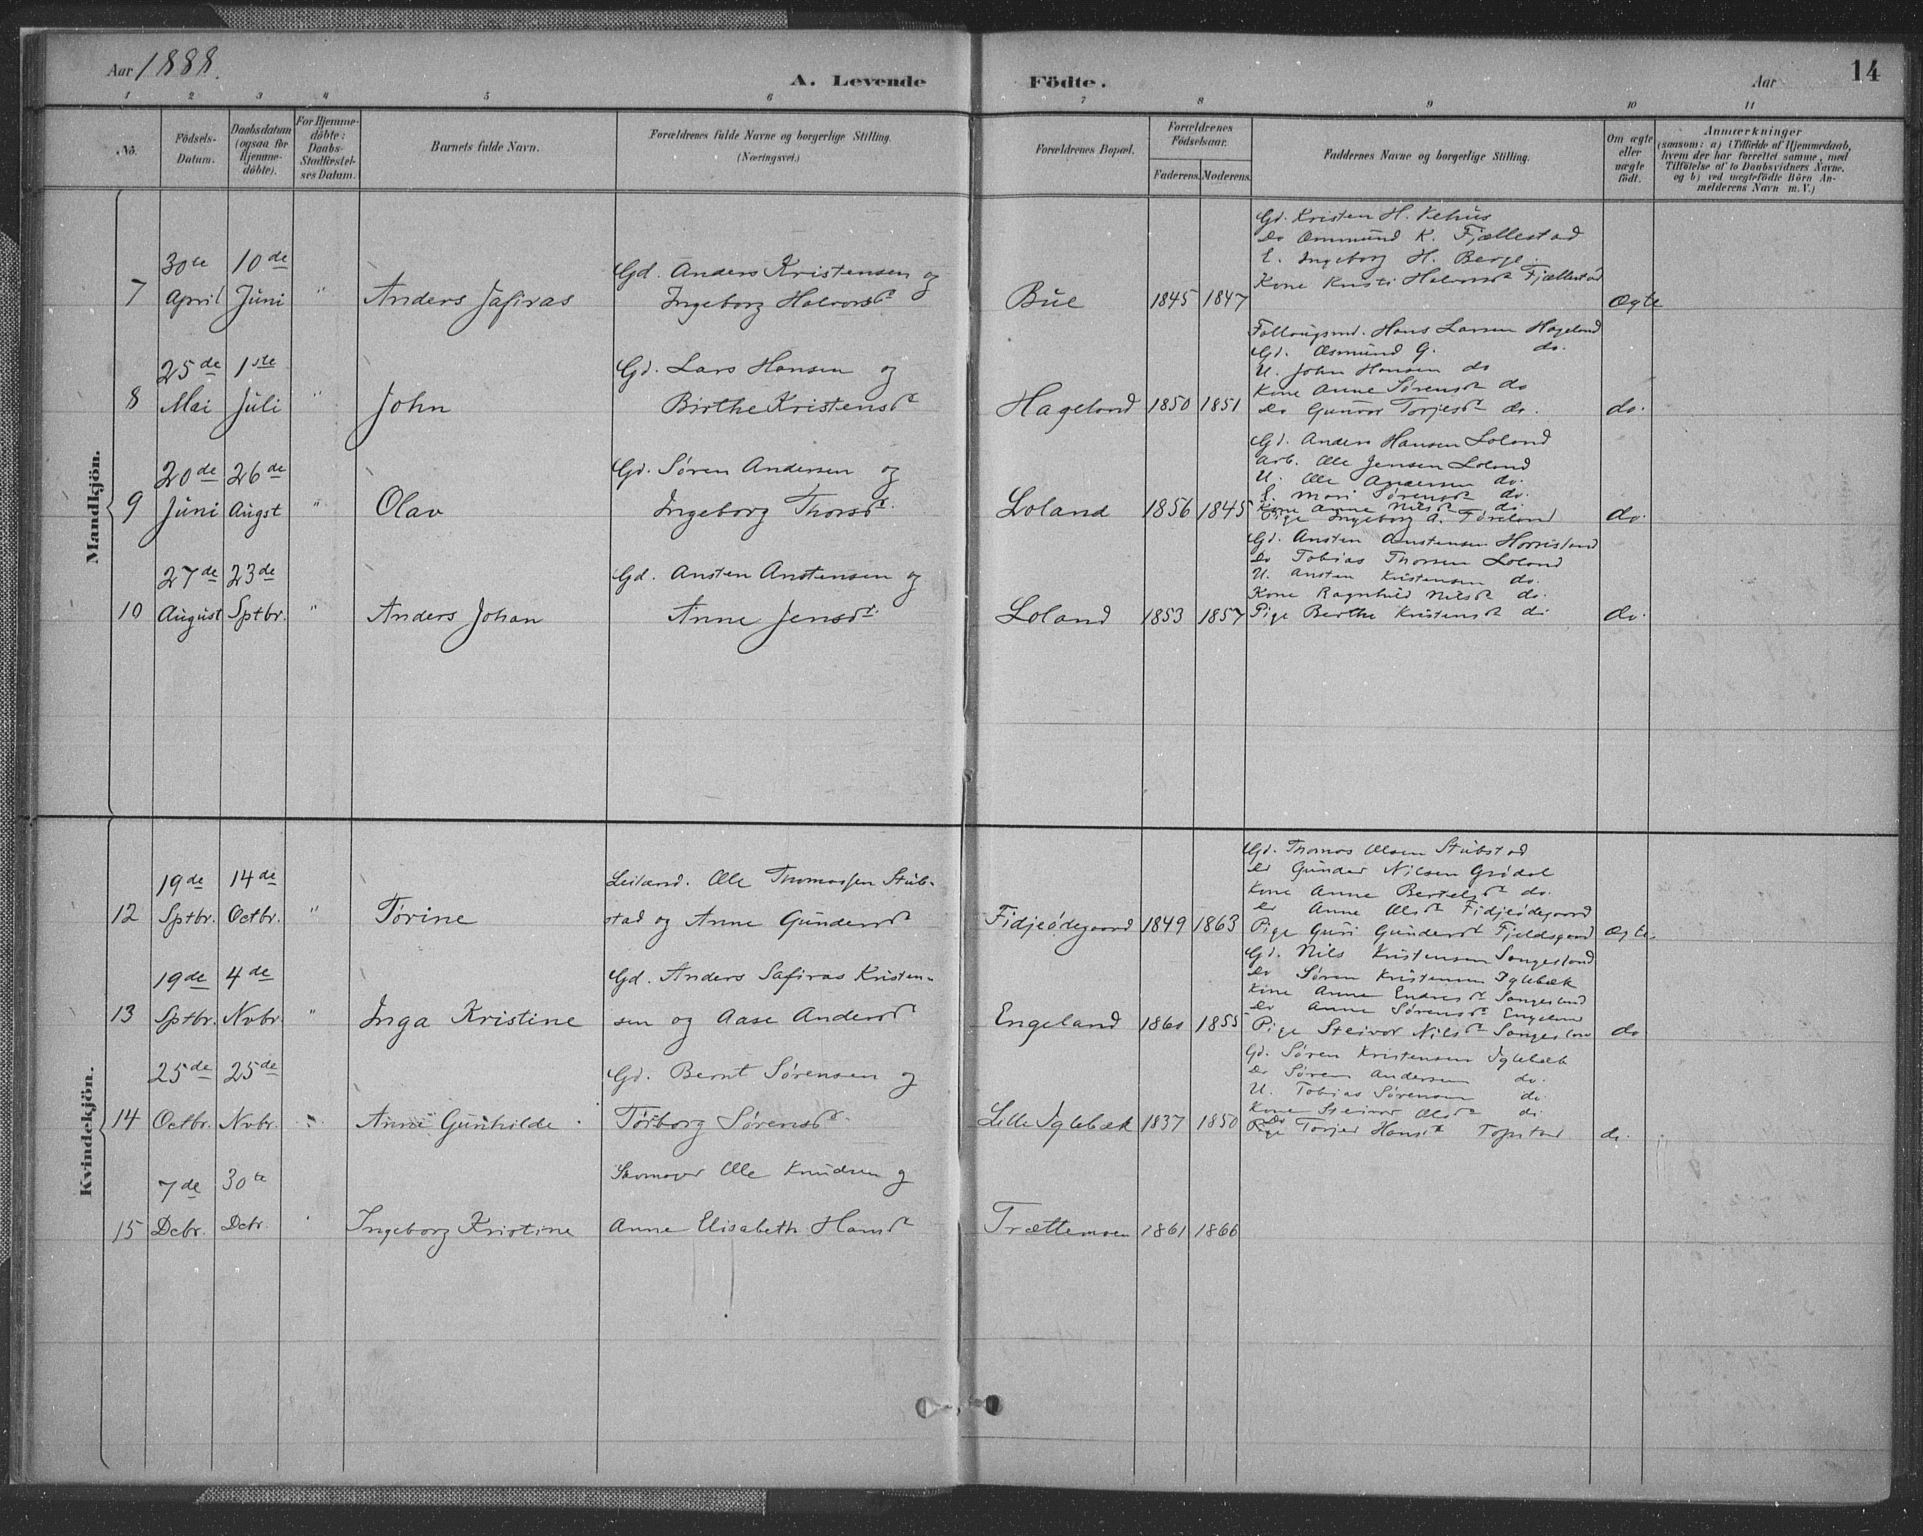 Aar 1888.
A. Levende Födte.
Aar
14
1 2 3 4 5 6 7 8 9 10 11
No.
Födsels-Datum.
Daabsdatum (ogsaa for Hjemme-döbte).
For Hjemme-döbte: Daabs-Stadfæstel-ses Datum.
Barnets fulde Navn.
Forældrenes fulde Navne og borgerlige Stilling.
(Næringsvei.)
Forældrenes Bopæl.
Forældrenes Födselsaar.
Faderens. Moderens.
Faddernes Navne og borgerlige Stilling.
Om ægte eller uægte födt.
Anmærkninger
(saasom: a) i Tilfælde af Hjemmedaab,
hvem der har forrettet samme, med
Tilföielse af to Daabsvidners Navne.
og b) ved uægtefödte Börn An-
melderens Navn m. V.)
Mandkjön.
7 30te April 10de Juni " Anders Jafiras
Gd. Anders Kristensen og
Ingeborg Halvorsdt
Bue 1845 1847
Gd. Kristen H. Vehus
Do Ommund K. Fjællestad
E. Ingeborg H. Berge.
Kone Kristi Halvorsdt Fjællestad
Ægte
8 25de Mai 1ste Juli " John
Gd. Lars Hansen og
Birthe Kristensdt
Hageland 1850 1851
Hans Larsen Hageland
Gd. Asmund G. do.
U. John Hansen do
Kone Anne Sørensdt do
Do Gunvor Torjesdt do.
do.
9 20de Juni 26de Augst " Olav
Gd. Søren Andersen og
Ingeborg Thorsdt.
Loland 1856 1845
Gd. Anders Hansen Loland
Arb. Ole Jensen Loland
U. Ole Andersen do.
E. Mari Sørensdt do.
Kone Anne Nilsdt do.
Pige Ingeborg A. Føreland
do.
10 27de August 23de Sptbr. " Anders Johan
Gd. Ansten Anstensen og
Anne Jensdt.
Loland 1853 1857
Gd. Ansten Anstensen
Do Tobias Thorsen Loland
U. Ansten Kristensen do.
Kone Ragnhild Nilsdt do.
Pige Berthe Kristensdt do
do.
Kvindekjön.
12 19de Sptbr. 14de Octbr. " Tørine
Leiland. Ole Thomassen Stub-
stad og Anne Gundersdt
Fidjeødegaard 1849 1863
Gd. Thomas Olsen Stubstad
Do Gunder Nilsen Grødal
Kone Anne Bertelsdt do.
Do Anne Olsdt Fidjeødegaard
Pige Guri Gundersdt Fjeldsgaard
Ægte.
13 19de Sptbr. 4de Nvbr. " Inga Kristine
Gd. Anders Safiras Kristen-
sen og Aase Andersdt
Engeland 1860 1855
Gd. Nils Kristensen Songesland
Do Søren Kristensen Iglebæk
Kone Anne Endresdt Songesland
Do Anne Sørensdt Engeland
Pige Steivor Nilsdt Songesland
do
14 25de Octbr. 25de Nvbr. " Anne Gunhilde
Gd. Bernt Sørensen og
Torborg Sørensdt.
Lille Iglebæk 1837 1850
Gd. Søren Kristensen Iglebæk
Do Søren Andersen do.
U. Tobias Sørensen do.
Kone Steivor Olsdt do
Pige Torjer Hansdt
do.
15 7de Dcbr. 30te Dcbr. Ingeborg Kristine
Ole Knudsen og
Anne Elisabeth Hansdt
Trættemoen 1861 1866